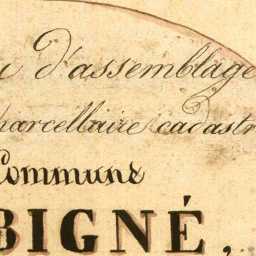 u d'assemblage
parcellaire cadastr
Commune
BIGNÉ,